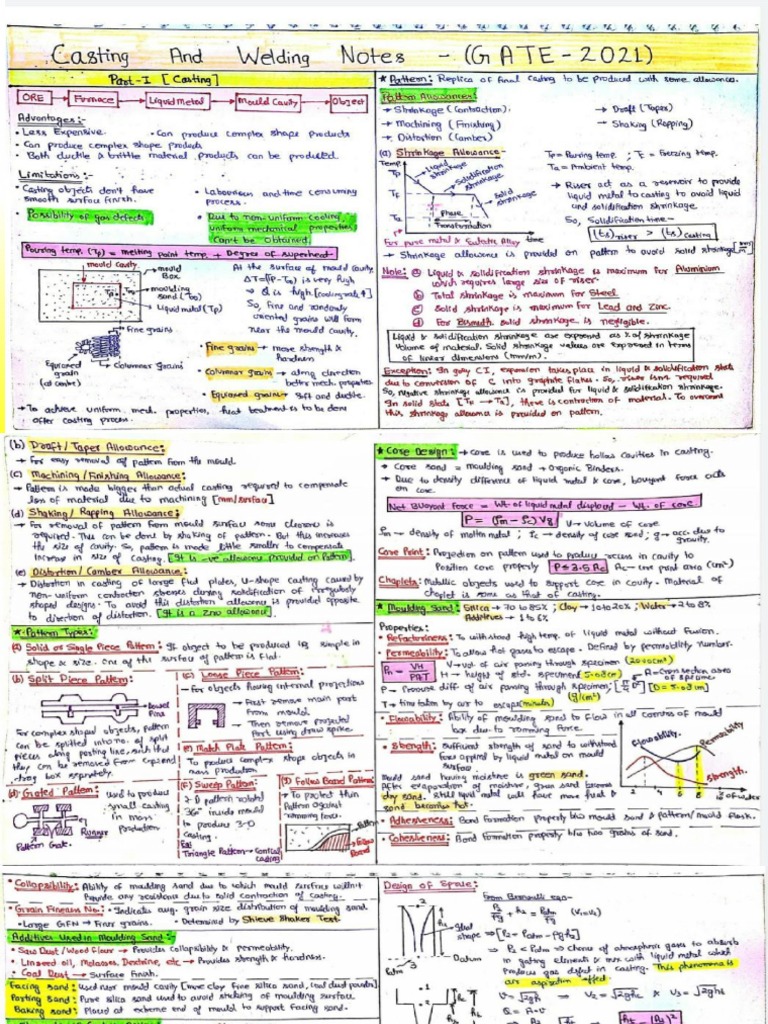 Casting And Welding Notes - (GATE-2021)
Part-I [Casting]
ORE Furnace Liquid Metal Mould Cavity Object
Advantages:-
• Less Expensive. • Can produce complex shape products
• Can produce complex shape products
• Both ductile & brittle material products can be produced
Limitations:-
• Casting objects don't have smooth surface finish.
• Laborious and time consuming process.
• Possibility of gas defects
• Due to non-uniform cooling, uniform mechanical properties, Can't be Obtained.
Pouring temp. (Tp) = melting point temp + Degree of superheat
mould cavity
mould Box
moulding sand (T∞)
Liquid metal (Tp)
Fine grains
Columnar grains
Equiaxed grain (at center)
At the surface of mould cavity
ΔT=(Tp-T∞) is very high
→ Q is high [cooling rate ↑]
So, Fine and randomly oriented grains will form near the mould cavity.
• Fine grains → more strength & hardness
• Columnar grains → along direction better mech. properties
• Equiaxed grains → soft and ductile.
→ To achieve uniform mech. properties, heat treatment is to be done after casting process.
* Pattern: Replica of final casting to be produced with some allowance.
Pattern Allowances:
→ Shrinkage (Contraction). → Draft (Taper)
→ Machining (Finishing) → Shaking (Rapping)
→ Distortion (Camber)
(a) Shrinkage Allowance-
Temp.
Tp
Tf
Ta
Liquid shrinkage
Solidification shrinkage
Solid shrinkage
Phase Transformation
time
For pure metal & Eutectic Alloy
Tp = Pouring temp. ; Tf = Freezing temp.
Ta = Ambient temp.
→ Riser act as a reservoir to provide liquid metal to casting to avoid liquid and solidification shrinkage.
So, Solidification time-
(ts)riser > (ts)casting
→ Shrinkage allowance is provided on pattern to avoid solid shrinkage
Note: (a) Liquid & solidification shrinkage is maximum for Aluminium which requires large size of riser.
(b) Total shrinkage is maximum for Steel
(c) Solid shrinkage is maximum for Lead and Zinc.
(d) For Bismuth solid shrinkage is negligible.
Liquid & Solidification shrinkage are expressed as % of shrinkage volume of material. Solid shrinkage values are expressed in terms of linear dimensions (mm/m).
Exception: In gray CI, expansion takes place in liquid & solidification stage due to conversion of C into graphite flakes. So, riser isn't required
So, negative shrinkage allowance is provided for liquid & solidification shrinkage.
In solid state [TF → Ta], there is contraction of material. To overcome this shrinkage allowance is provided on pattern.
(b) Draft/Taper Allowance:
→ For easy removal of pattern from the mould.
(c) Machining/Finishing Allowance:
→ Pattern is made bigger than actual casting required to compensate loss of material due to machining [mm/surface]
(d) Shaking/Rapping Allowance:
→ For removal of pattern from mould surface some clearance is required. This can be done by shaking of pattern. But this increases the size of cavity. So, pattern is made little smaller to compensate increase in size of casting. [It is -ve allowance provided on Pattern]
(e) Distortion/Camber Allowance:
→ Distortion in casting of large flat plates, U-shape casting caused by non-uniform contraction stresses during solidification of irregularly shaped designs. To avoid this distortion allowance is provided opposite to direction of distortion. [It is a Zero allowance].
* Pattern Types:
(a) Solid or Single Piece Pattern: If object to be produced is simple in shape & size. One of the surface of pattern is flat.
(b) Split Piece Pattern:
Dowel Pins
For complex shaped objects, pattern can be splitted into no. of split pieces along parting line, such that they can be removed from cope and drag box separately.
(c) Loose Piece Pattern:
→ For objects having internal projections
→ First remove main part from mould.
→ Then remove projected part using draw spike.
(d) Gated Pattern:
Used to produce small casting in mass production
Runner
Pattern Gate.
(e) Match Plate Pattern:
To produce complex shape objects in mass production.
(f) Sweep Pattern:
2-D pattern rotated 360° inside mould to produce 3-D casting.
Eg:
Triangle Pattern → Conical casting
(g) Follow Board Pattern:
→ To protect thin Pattern against ramming force.
Pattern
Follow Board
* Core Design: → Core is used to produce hollow cavities in casting.
→ Core sand = moulding sand + Organic Binders.
→ Due to density difference of liquid metal & core, bouyant force acts on core.
Net Buoyant Force = Wt. of liquid metal displaced - Wt. of core.
P = (ρm - ρc)Vg V → Volume of core
ρm → density of molten metal ; ρc → density of core sand ; g → acc. due to gravity.
Core Print: Projection on pattern used to produce recess in cavity to Position core properly P ≤ 3.5 Ac Ac → core print area (cm²)
Chaplets: Metallic objects used to support core in cavity. Material of chaplet is same as that of casting.
* Moulding Sand: Silica → 70 to 85% ; Clay → 10 to 20% ; Water → 2 to 8%
Additives → 1 to 6%
Properties:
• Refractoriness: To withstand high temp. of liquid metal without fusion.
• Permeability: To allow hot gases to escape. Defined by permeability number.
Pn = VH/PAT
V → Vol. of air passing through specimen (2000 cm³)
H → height of std. specimen [5.08 cm] A → Cross section area of specimen
P → Pressure diff. of air passing through specimen; (g/cm²) [D = 5.08 cm]
T → time taken by air to escape (minute)
• Flowability: Ability of moulding sand to flow in all corners of mould box due to ramming force.
• Strength: Sufficient strength of sand to withstand force applied by liquid metal on mould surface
Mould sand having moisture is green sand.
After evaporation of moisture, green sand becomes dry sand. Still liquid metal will have more fuel & sand becomes hot.
Flowability.
Permeability
Strength.
2 4 6 8
% of water
• Adhesiveness: Bond formation property b/w mould sand & pattern/mould flask.
• Cohesiveness: Bond formation property b/w two grains of sand.
• Collapsibility: Ability of moulding sand due to which mould surface will not provide any resistance due to solid contraction of casting.
• Grain Fineness No.: • Indicates avg. grain size distribution of moulding sand.
• Large GFN → Finer grains. • Determined by Shieve Shaker Test.
Additives Used in Moulding Sand:-
• Saw Dust/Wood flour → Provides collapsibility & permeability.
• Linseed oil, Molasses, Dextrine, etc → Provides strength & hardness.
• Coal Dust → Surface finish.
Facing sand: Used near mould cavity [more clay fine silica sand, coal dust powder]
Parting Sand: Pure silica sand used to avoid shaking of moulding surface
Baking sand: Placed at extreme end of mould to support facing sand.
Design of Sprue:
From Bernoulli eqn-
(V₁=V₂)
Ideal shape
Datum
→ P₂ < Patm → Chance of atmospheric gases to absorb in gating elements & mix with liquid metal which produces gas defect in casting. This phenomena is as aspiration effect.
V = √2gh → V₂ = √2ghc & V₃ = √2ght
Q = A·V